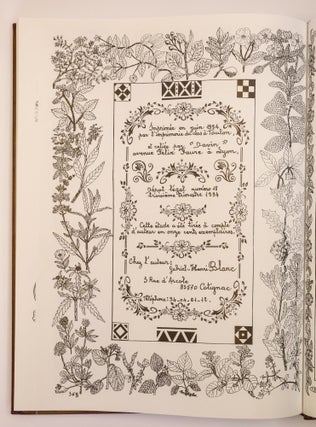 Imprimée en juin 1994,
par l'imprimerie du Las à Toulon,
et reliée par Davin,
avenue Félix Faure à Nyon.
Dépot légal numéro 18
troisième trimestre 1994
Cette étude a été tirée à compte
d'auteur en onze cents exemplaires.
Chez l'auteur:
Gabriel-Henri Blanc
3 Rue d'Arcole
83570 Cotignac
Téléphone: 94-04-61-12.